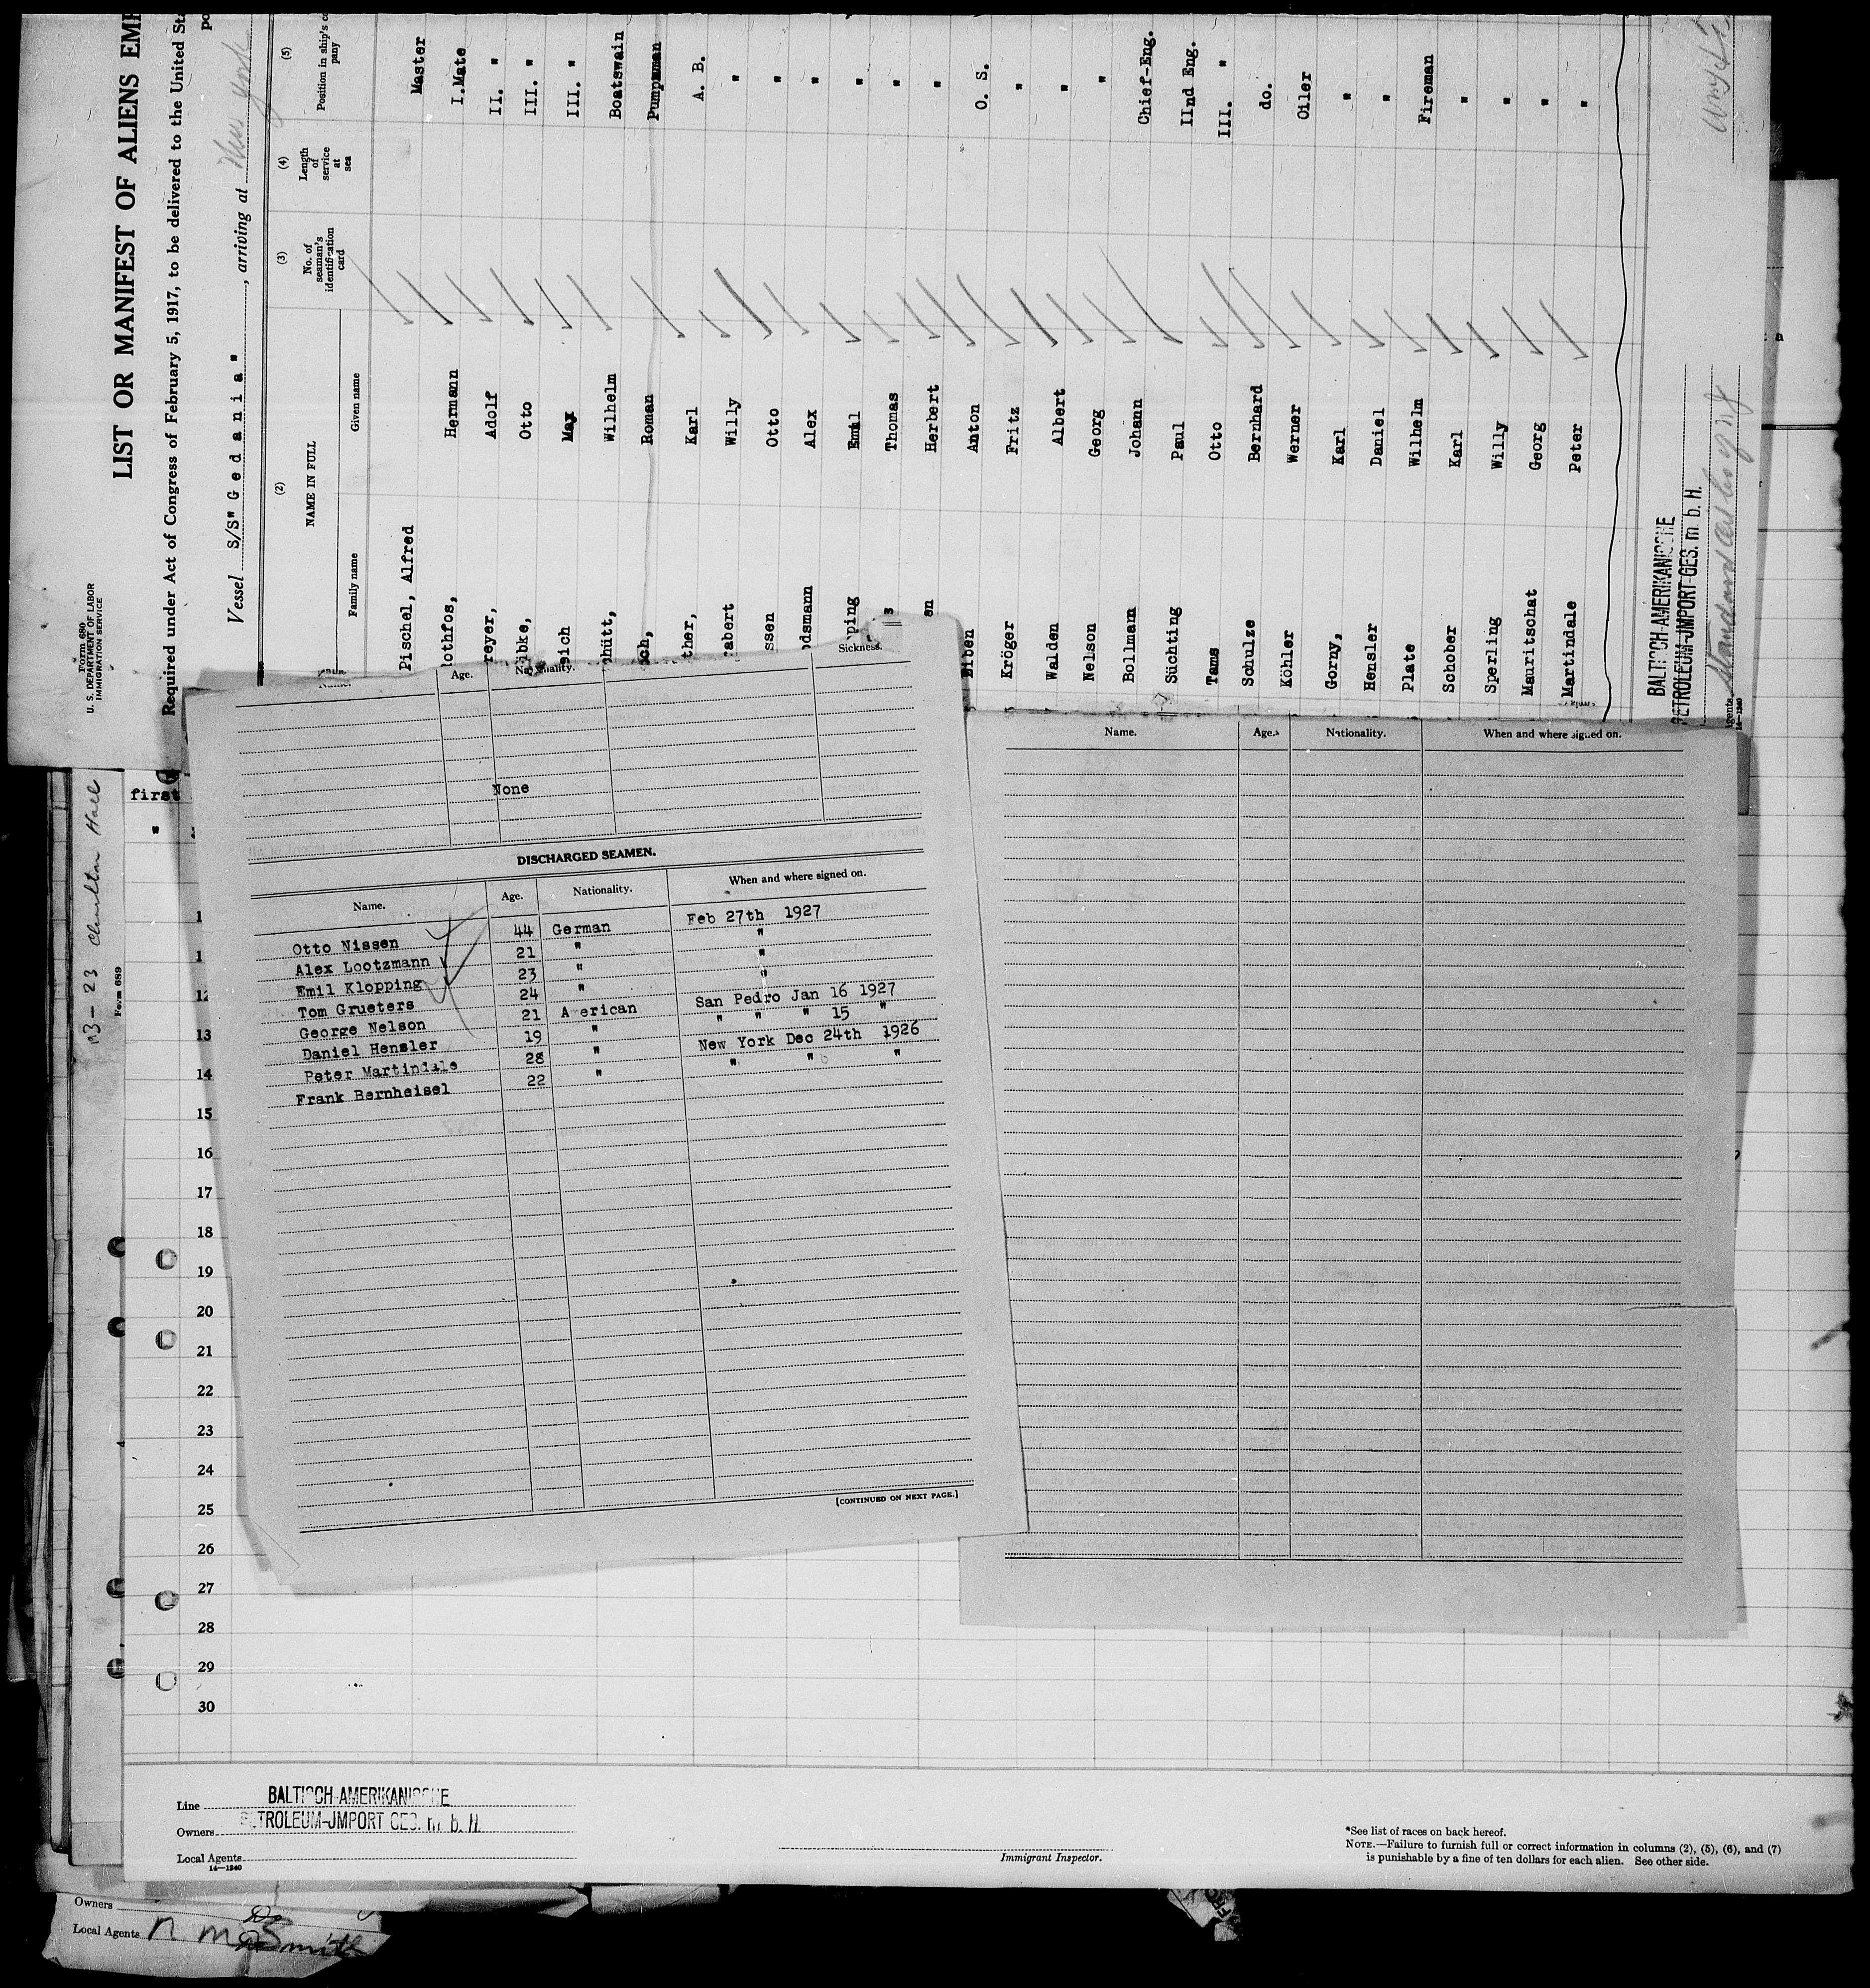 Form 680
U. S. DEPARTMENT OF LABOR
IMMIGRATION SERVICE
LIST OR MANIFEST OF ALIENS EMP
Required under Act of Congress of February 5, 1917, to be delivered to the United Sta
Vessel S/S" Gedania" , arriving at New York
(2) (3) (4) (5)
NAME IN FULL
Family name Given name
No. of seaman's identification card
Length of service at sea
Position in ship's com
pany
Pischel, Alfred Master
othfos, Hermann I.Mate
reyer, Adolf II. "
ibke, Otto III. "
eich Max III. "
hütt, Wilhelm Boatswain
ch, Roman Pumpsman
ther, Karl A. B.
abert Willy "
ssen Otto "
odsmann Alex "
ping Emil "
s Thomas "
en Herbert "
Eiben Anton O. S.
Kröger Fritz "
Walden Albert "
Nelson Georg "
Bollmann Johann Chief-Eng.
Süchting Paul IInd Eng.
Tams Otto III. "
Schulze Bernhard do.
Köhler Werner Oiler
Gorny, Karl "
Hensler Daniel "
Plate Wilhelm Fireman
Schober Karl "
Sperling Willy "
Mauritschat Georg "
Martindale Peter "
BALTISCH-AMERIKANISCHE
PETROLEUM-JMPORT-GES. m. b. H.
Agents
14—1240
Age. Nationality. Sickness.
None
DISCHARGED SEAMEN.
Name. Age. Nationality. When and where signed on.
Otto Nissen 44 German Feb 27th 1927
Alex Lootzmann 21 " "
Emil Klopping 23 " "
Tom Grueters 24 " "
George Nelson 21 American San Pedro Jan 16 1927
Daniel Hensler 19 " " " " 15 "
Peter Martindale 28 " New York Dec 24th 1926
Frank Bernheisel 22 " " " "
[CONTINUED ON NEXT PAGE.]
Name. Age. Nationality. When and where signed on.
Form 689
first
"
1
1
12
13
14
15
16
17
18
19
20
21
22
23
24
25
26
27
28
29
30
Line BALTISCH-AMERIKANISCHE
Owners PETROLEUM-JMPORT GES. m. b. H.
Local Agents
14—1240
Immigrant Inspector.
*See list of races on back hereof.
NOTE.—Failure to furnish full or correct information in columns (2), (5), (6), and (7)
is punishable by a fine of ten dollars for each alien. See other side.
Owners Do
Local Agents